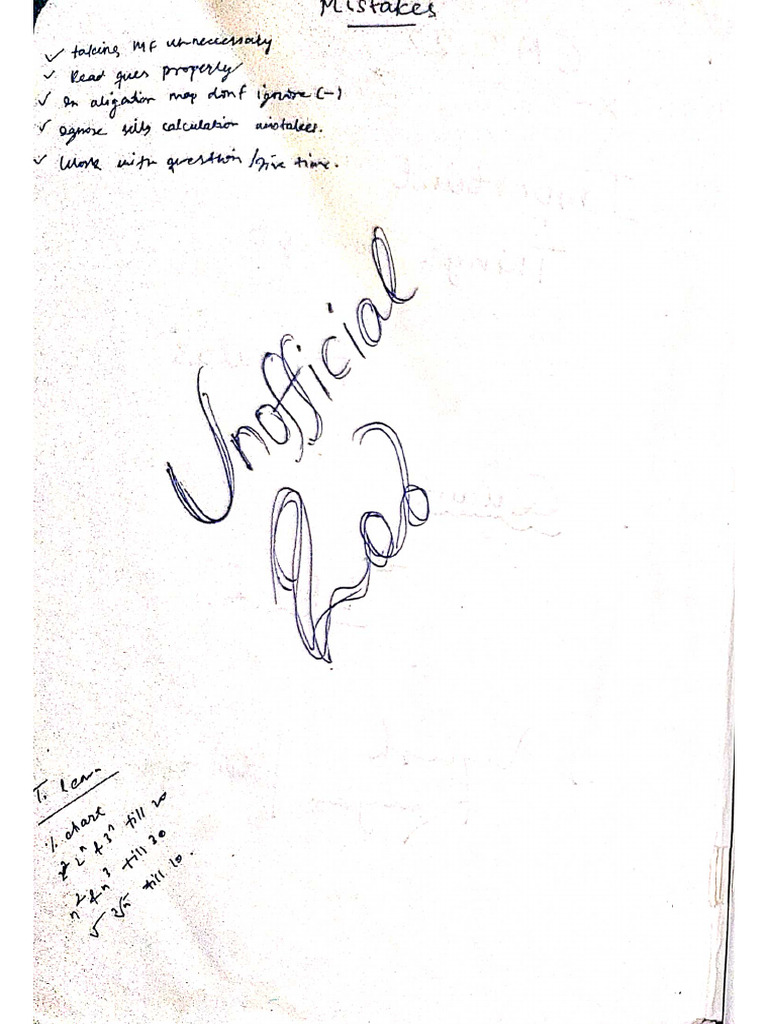 Mistakes
✓ taking MF unnecessary
✓ Read ques properly
✓ In aligation map dont ignore (-)
✓ Ignore silly calculation mistakes.
✓ Work with question / give time.
Unofficial
T. learn
% chart
2ⁿ & 3ⁿ till 20
n² & n³ till 30
√ ∛n till 10.